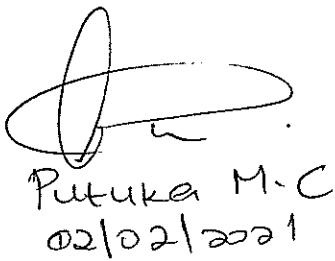 Putuka M.C
02/02/2021